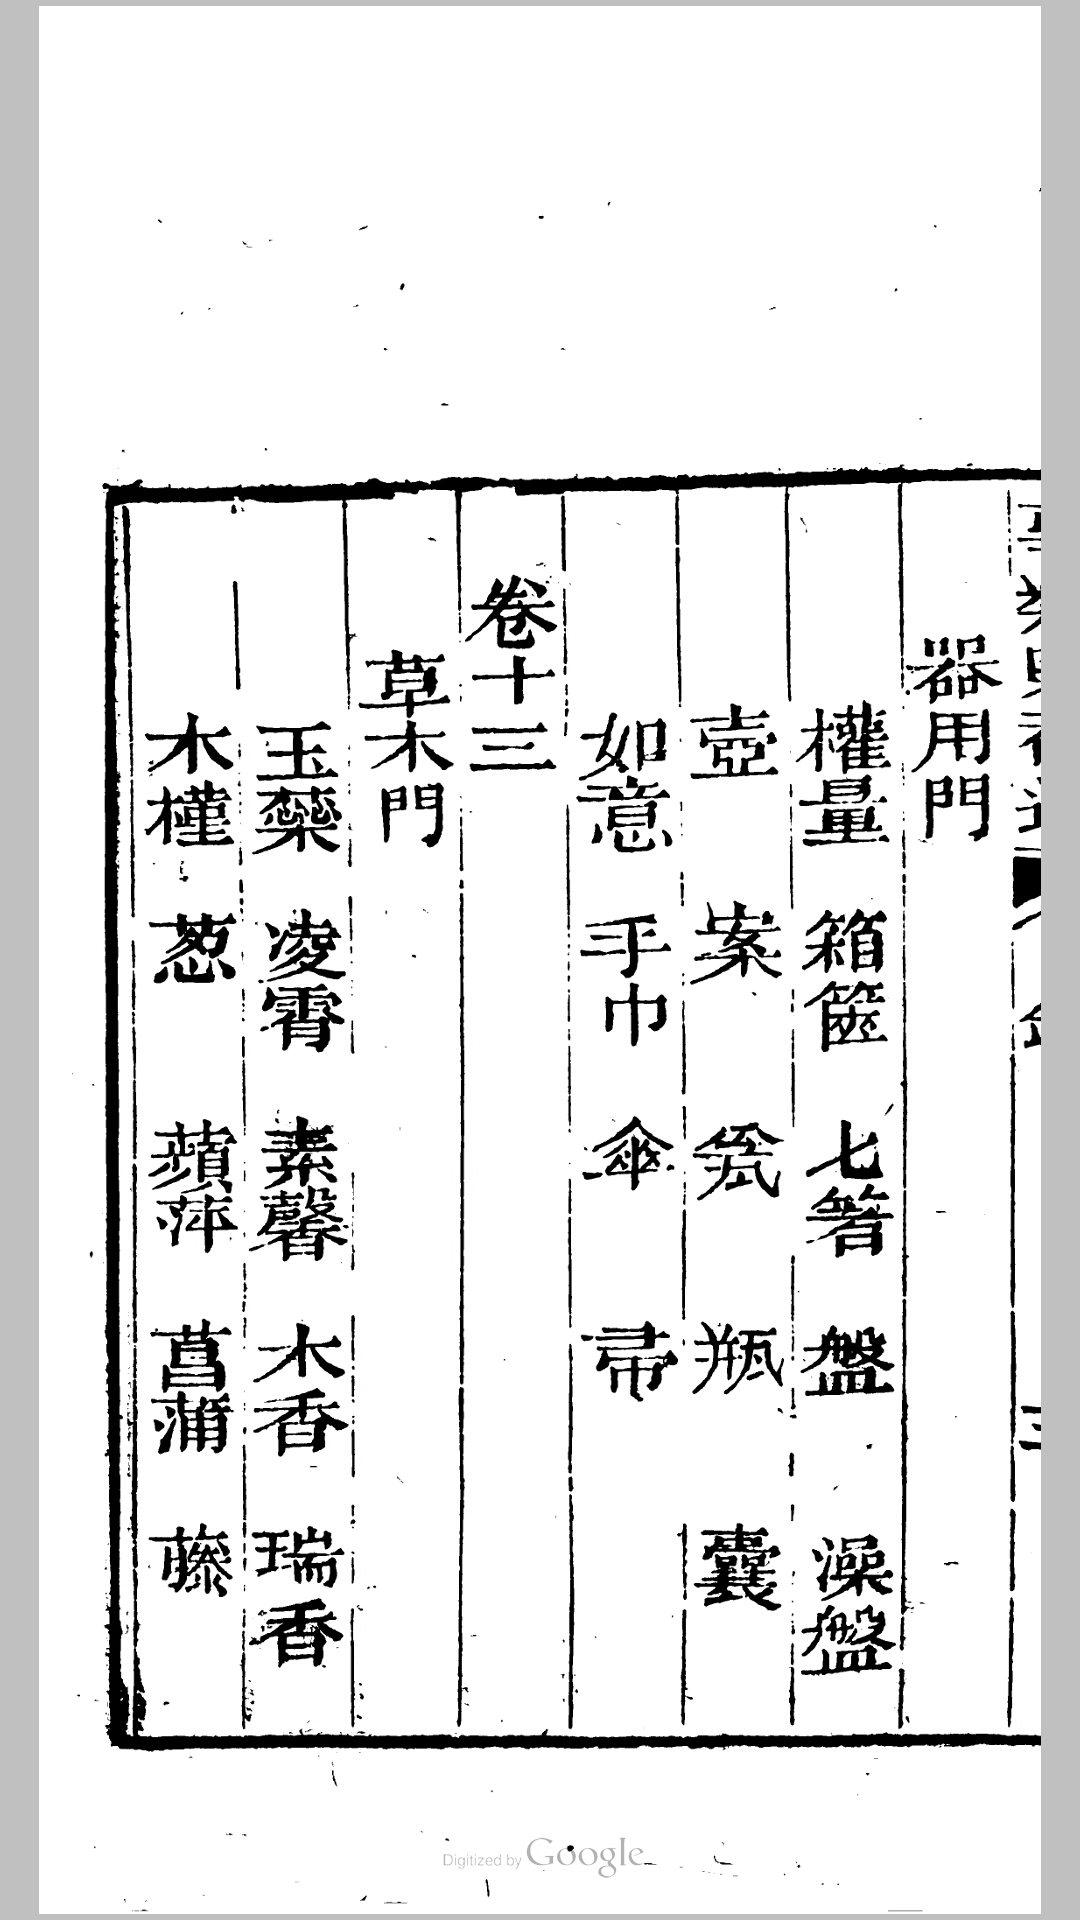 器用門
權量 箱篋 匕箸 盤 澡盤
壺 案 瓮 瓶 囊
如意 手巾 傘 帚
卷十三
草木門
玉蘂 凌霄 素馨 木香 瑞香
木槿 葱 蘋萍 菖蒲 藤
Digitized by Google